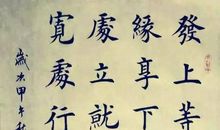 發上等
緣享下
處立就
寬處行
歲次甲午秋